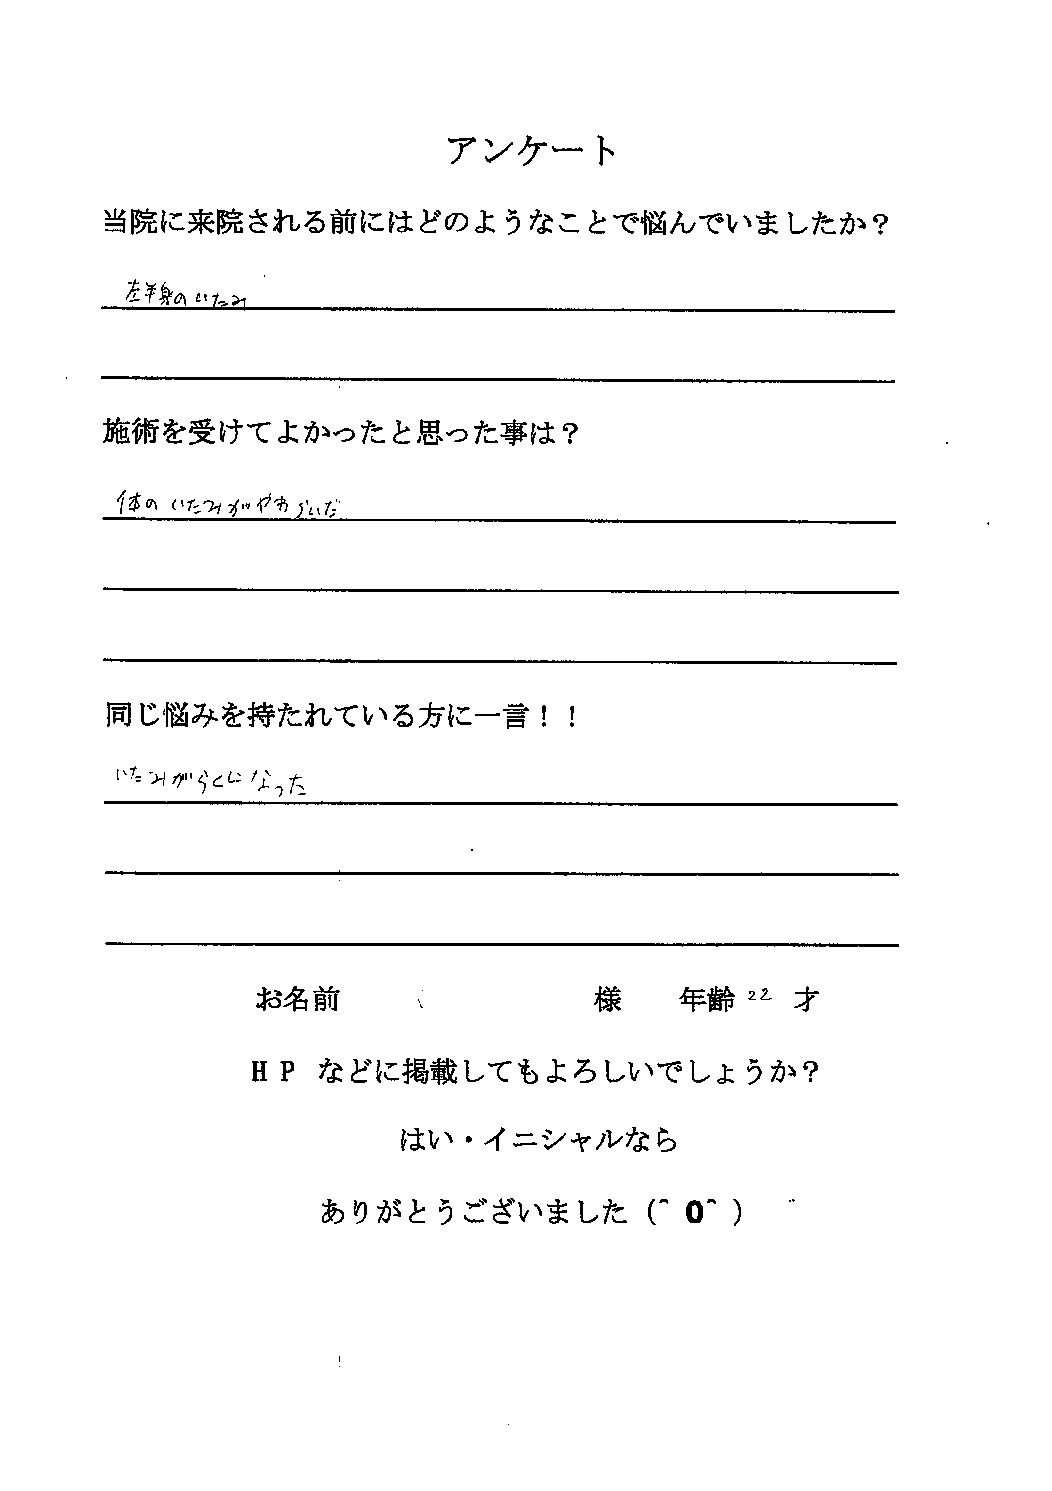 アンケート
当院に来院される前にはどのようなことで悩んでいましたか？
左半身のいたみ
施術を受けてよかったと思った事は？
体のいたみがやわらいだ
同じ悩みを持たれている方に一言！！
いたみがらくになった
お名前 様 年齢 22 才
HP などに掲載してもよろしいでしょうか？
はい・イニシャルなら
ありがとうございました（＾0＾）